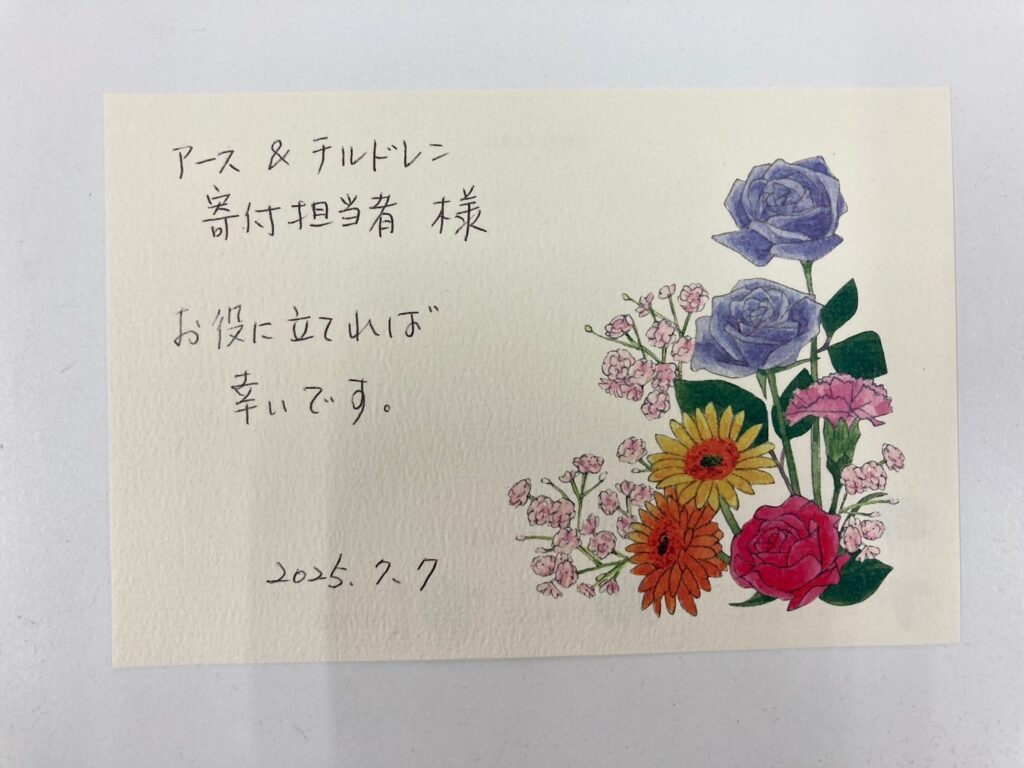 アース & チルドレン
寄付担当者 様
お役に立てれば
幸いです。
2025.7.7